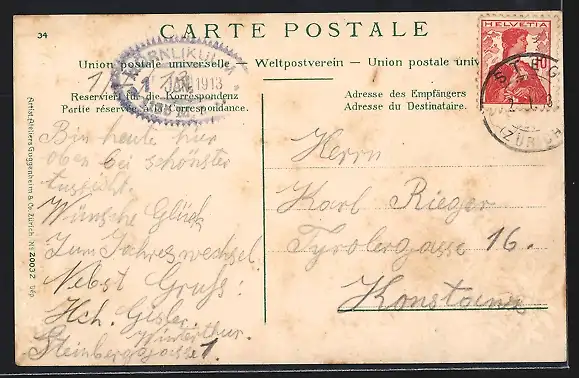 34
CARTE POSTALE
HELVETIA
10
HÖRNLIKULM
1 JAN. 1913
1133 M
Union postale universelle — Weltpostverein — Union postale univ
Reserviert für die Korrespondenz
Partie réservée à la Correspondance.
Adresse des Empfängers
Adresse du Destinataire.
1/1 13
(ZÜRICH)
Bin heute hier
oben bei schönster
Aussicht.
Wünsche Glück
Zum Jahreswechsel.
Nebst Gruss:
Hch. Gisler.
Winterthur.
Steinberggasse 1.
Herrn
Karl Rieger
Tyrolergasse 16.
Konstanz
Artist. Ateliers Guggenheim & Co, Zürich, No 2003 Z Dép.